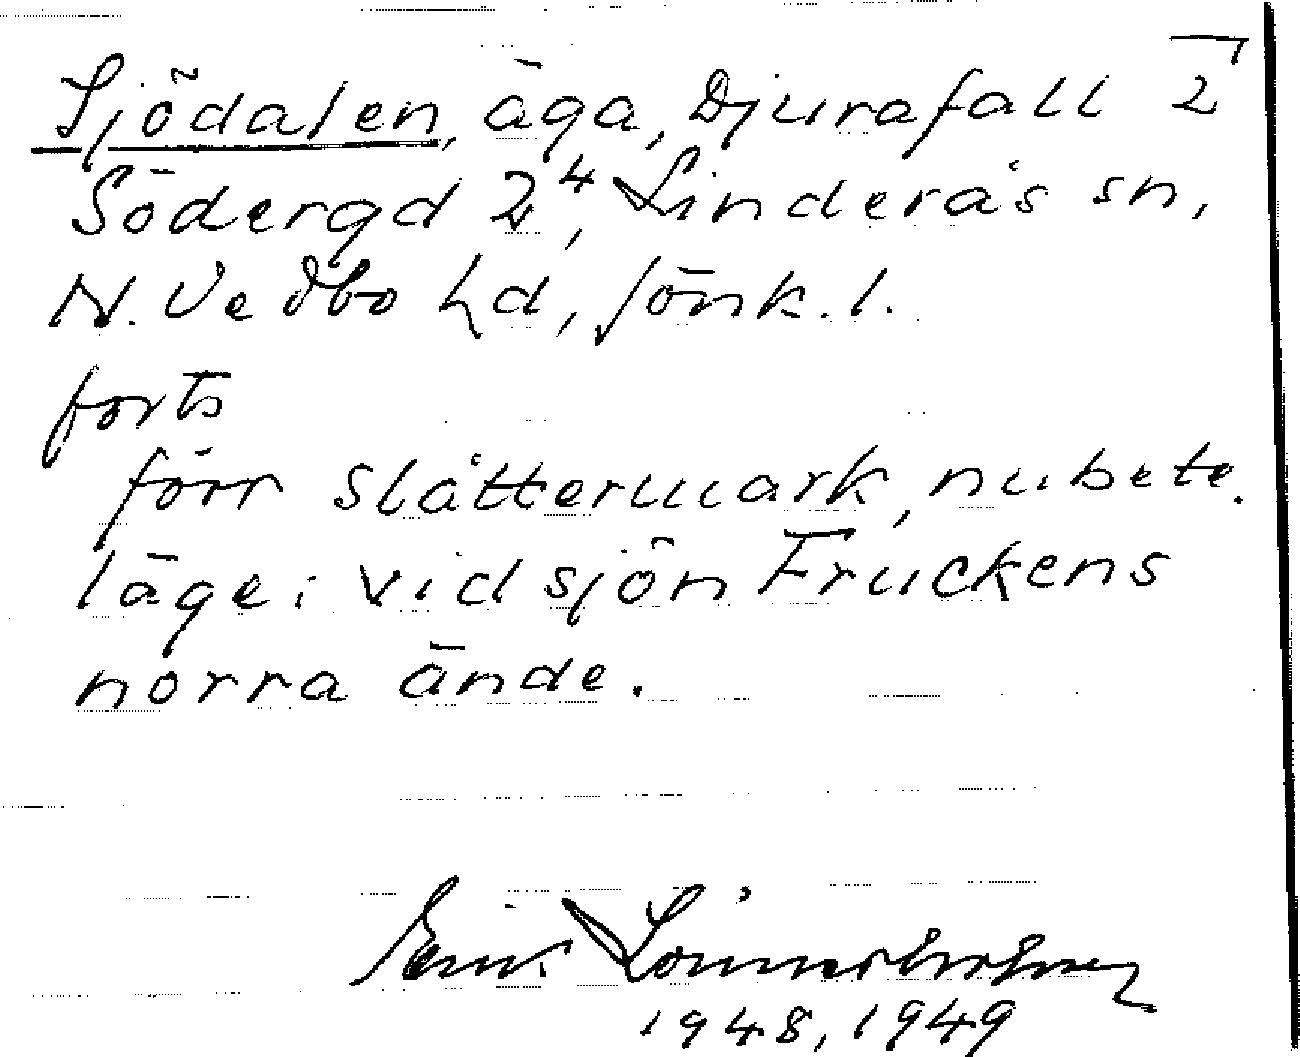 Sjödalen, äga, Djurafall 2
Södergd 2⁴, Linderås sn,
N. Vedbo hd, Jönk. l.
forts
förr slåttermark, nu bete.
läge: vid sjön Fruckens
norra ände.
Lönnerholm
1948, 1949